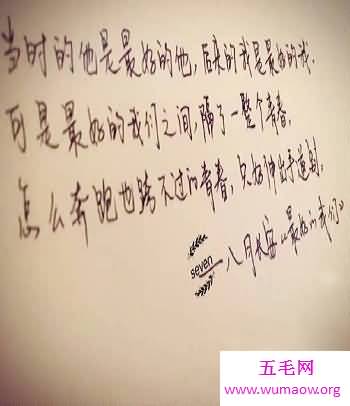 当时的他是最好的他,后来的我是最好的我.
可是最好的我们之间,隔了一整个青春,
怎么奔跑也跨不过的青春,只好伸出手道别.
seven
—八月长安《最好的我们》
五毛网
www.wumaow.org